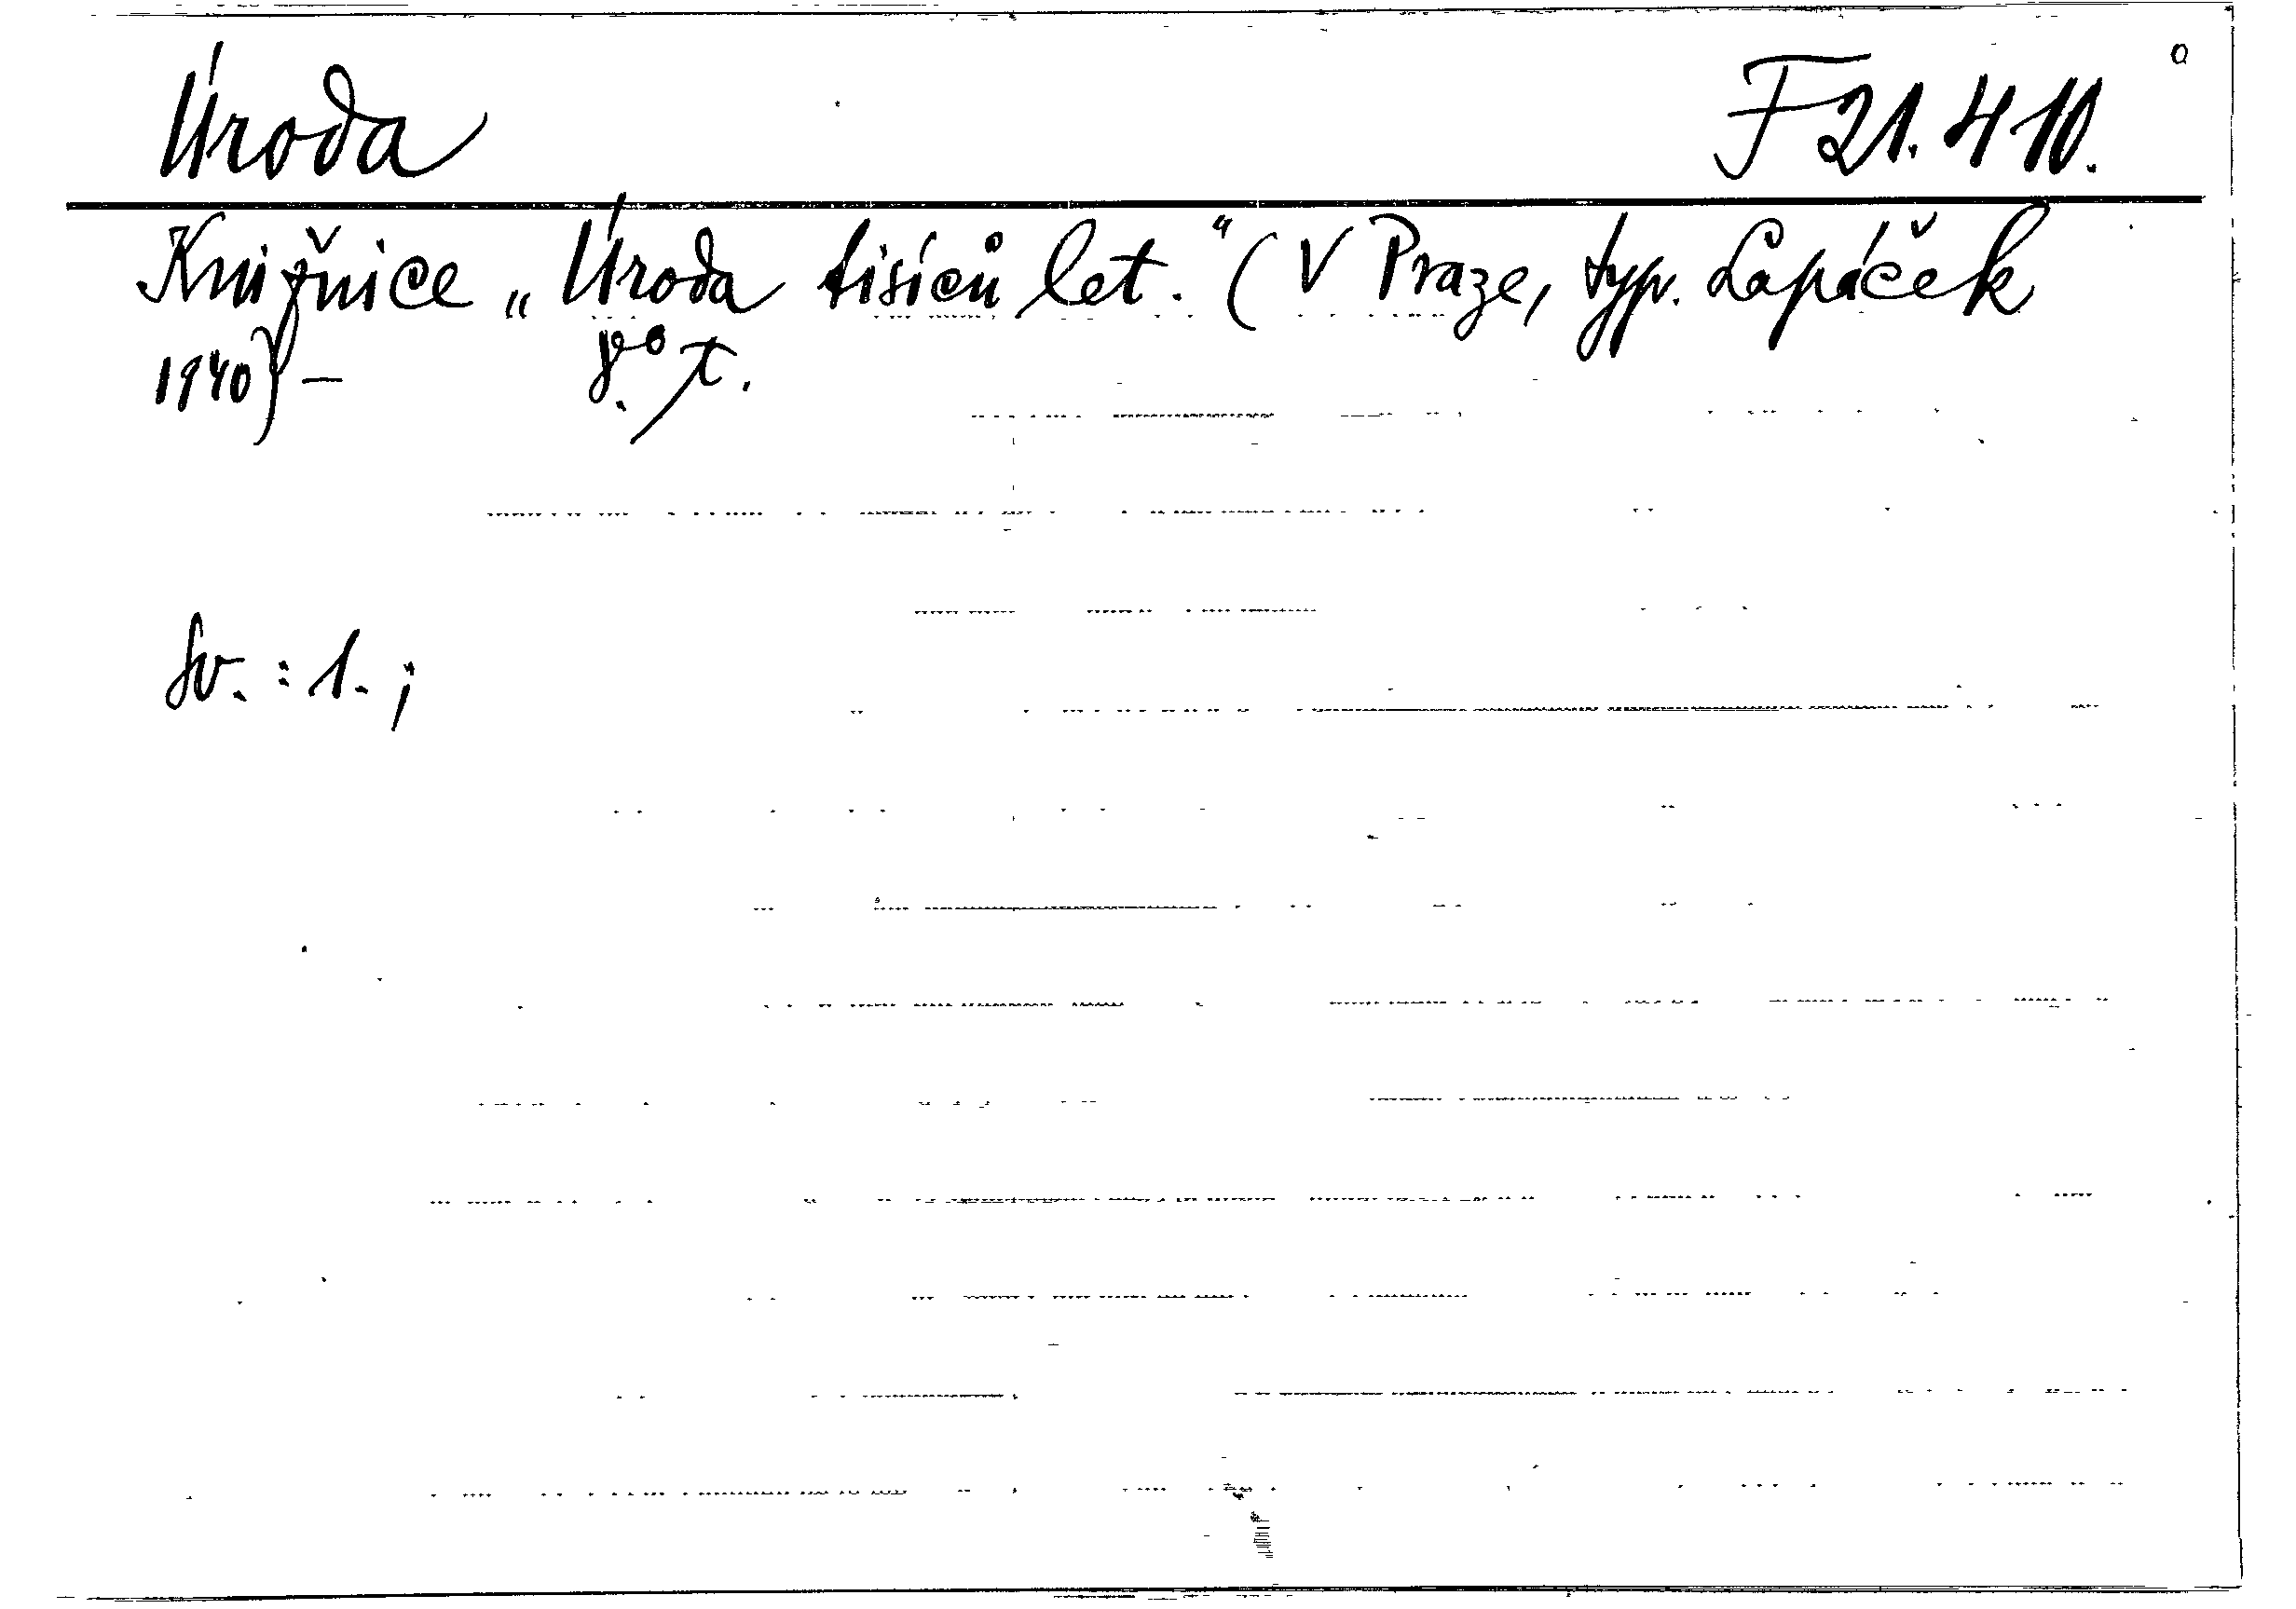 Úroda F 21.410.
Knižnice „Úroda tisíců let.“ (V Praze, typ. Lapáček
1940) – 8.°
Sv. : 1. ;